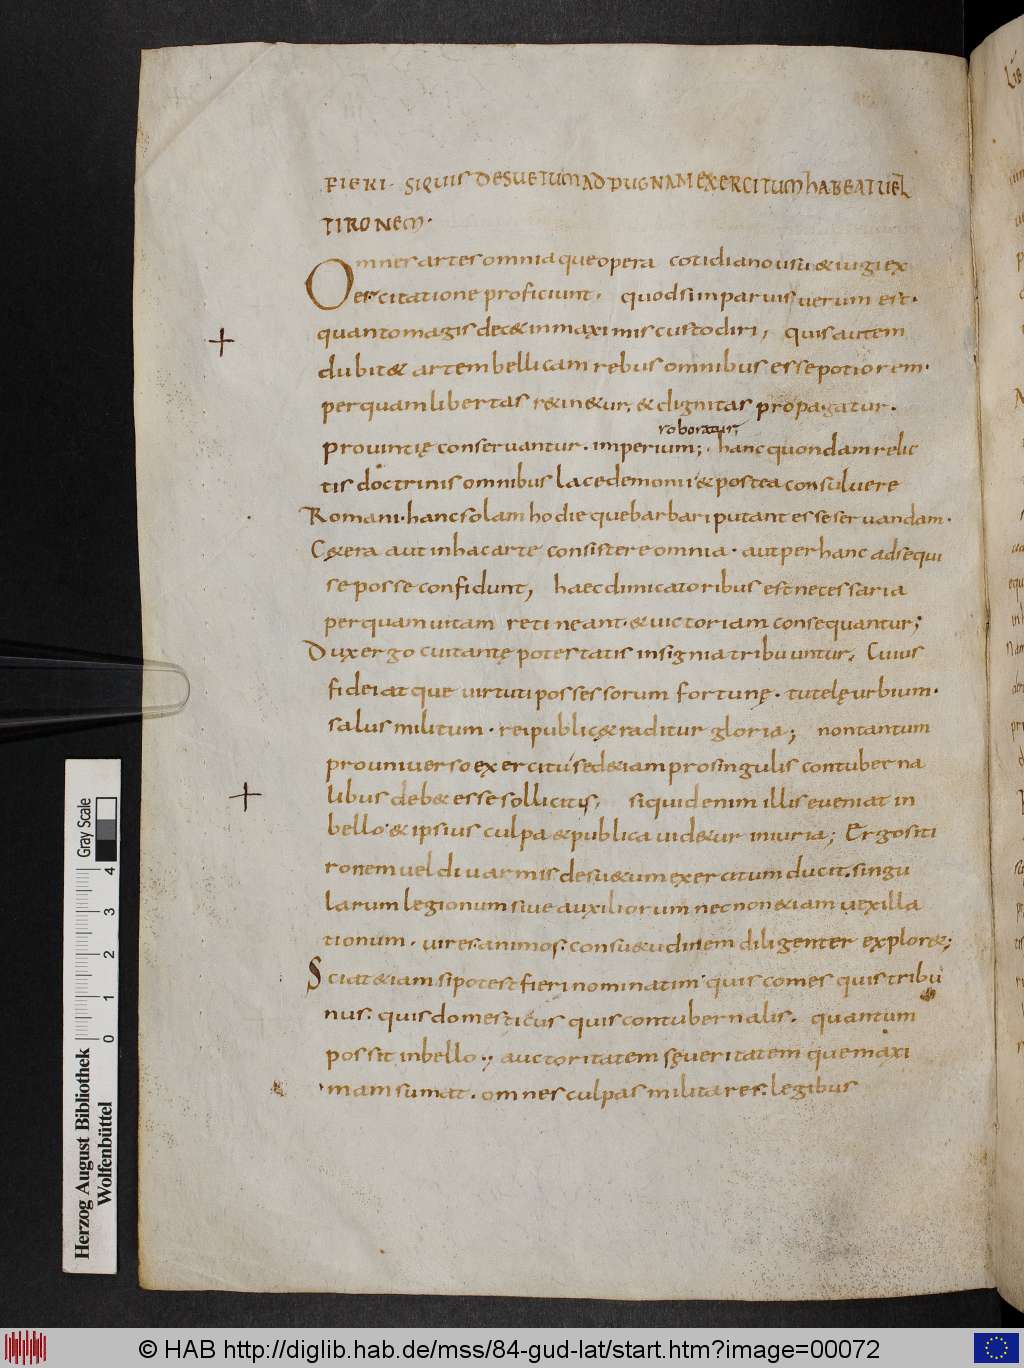 FIERI· SIQUIS DESUETUM AD PUGNAM EXERCITUM HABEAT VEL
TIRONEM·
Omnes artes omniaque opera cotidiano usu & iugi ex
ercitatione proficiunt, quod si in parvis verum est·
quanto magis dec& in maximis custodiri, quis autem
dubit& artem bellicam rebus omnibus esse potiorem·
per quam libertas r&in&ur; & dignitas propagatur·
roboratur;
provintię conservantur· imperium;· hanc quondam relic
tis doctrinis omnibus lacedemonii & postea consuluere
Romani· hanc solam hodieque barbari putant esse servandam·
C&era aut in hac arte consistere omnia· aut per hanc adsequi
se posse confidunt, haec dimicatoribus est necessaria
per quam vitam retineant· & victoriam consequantur;
Dux ergo cui tantę potestatis insignia tribuuntur, Cuius
fidei atque virtuti possessorum fortunę· tutelę urbium·
salus militum· reipublicę &raditur gloria; non tantum
pro universo exercitu sed &iam pro singulis contuberna
libus deb& esse sollicitus, siquid enim illis eveniat in
bello· & ipsius culpa & publica vid&ur iniuria; Ergo si ti
ronem vel diu armis desu&um exercitum ducit· singu
larum legionum sive auxiliorum nec non &iam vexilla
tionum· vires animos· consu&udinem diligenter explor&;
Sciat &iam si potest fieri nominatim· quis comes quis tribu
nus· quis domesticus quis contubernalis· quantum
possit in bello·, auctoritatem sęveritatemque maxi
mam sumat· omnes culpas militares· legibus
Herzog August Bibliothek
Wolfenbüttel
0 1 2 3 4
Gray Scale
© HAB http://diglib.hab.de/mss/84-gud-lat/start.htm?image=00072